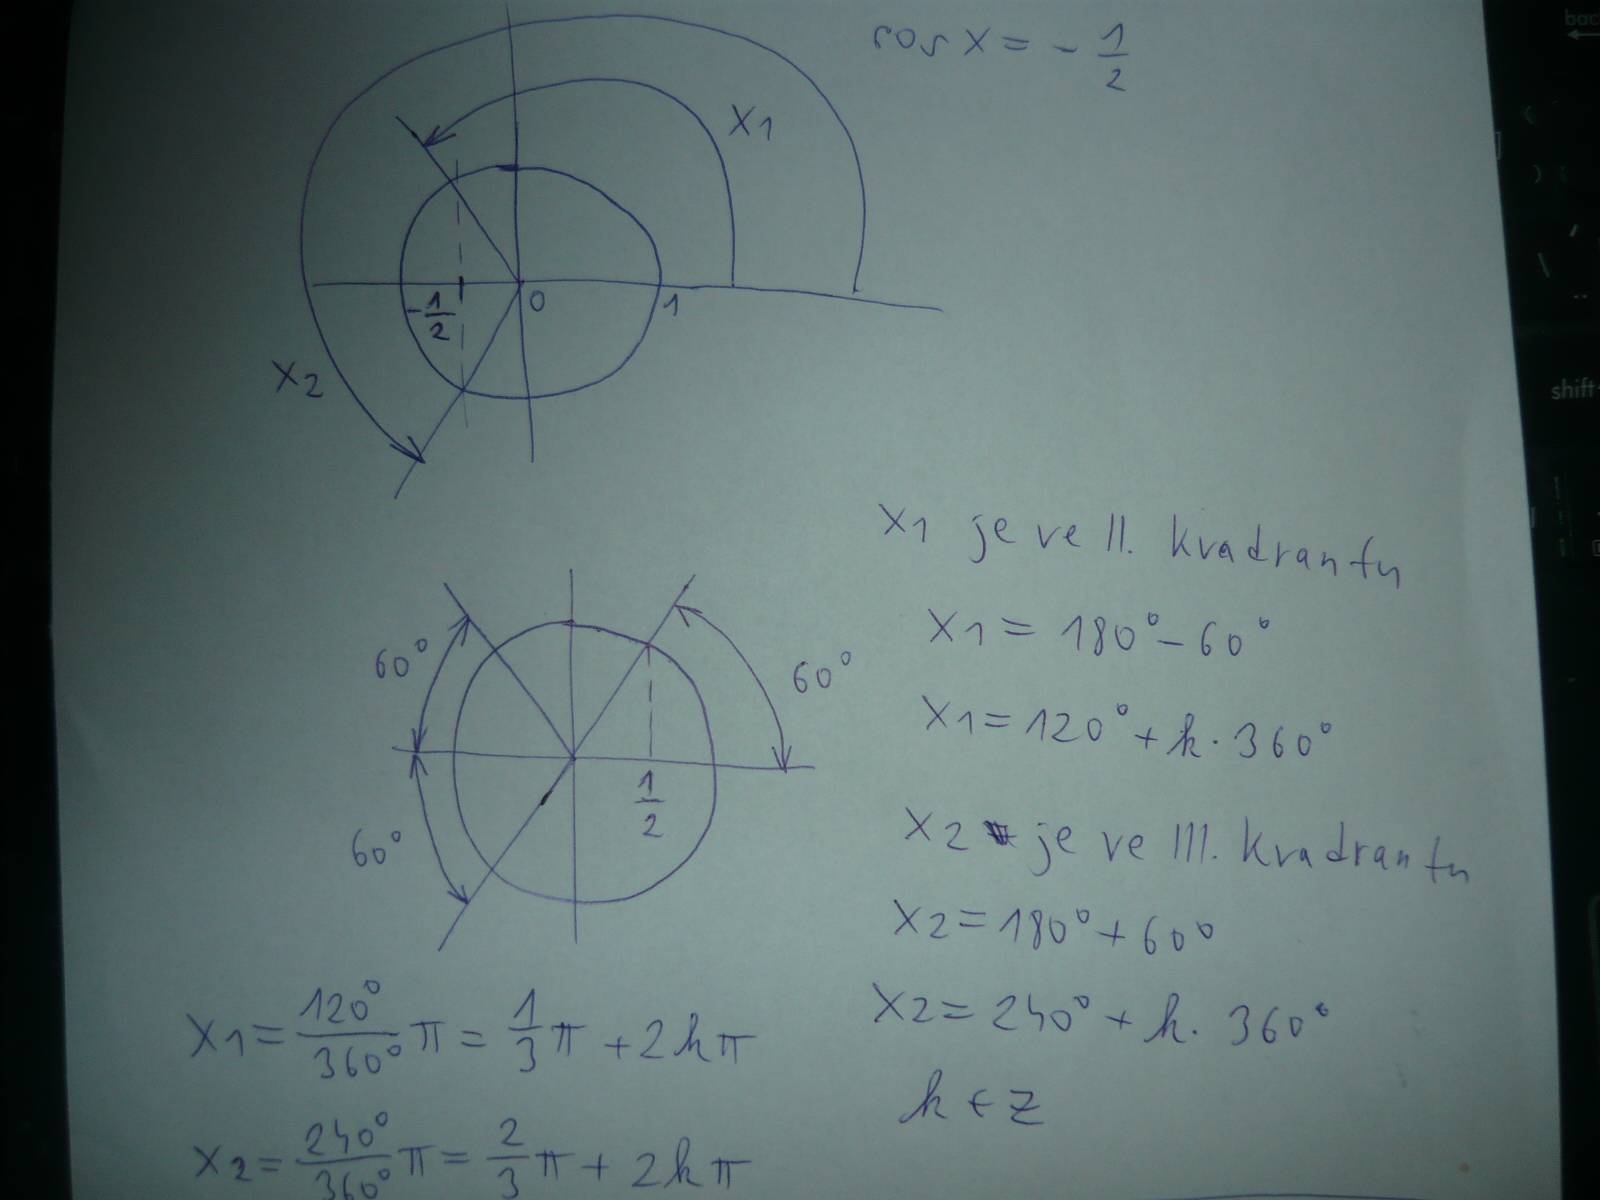 cos x = - 1/2
x1
-1/2
0
1
x2
x1 je ve II. kvadrantu
x1 = 180° - 60°
x1 = 120° + k · 360°
60°
60°
1/2
60°
x2 je ve III. kvadrantu
x2 = 180° + 60°
x2 = 240° + k · 360°
k ∈ Z
x1 = 120°/360° π = 1/3 π + 2kπ
x2 = 240°/360° π = 2/3 π + 2kπ
shift
bac